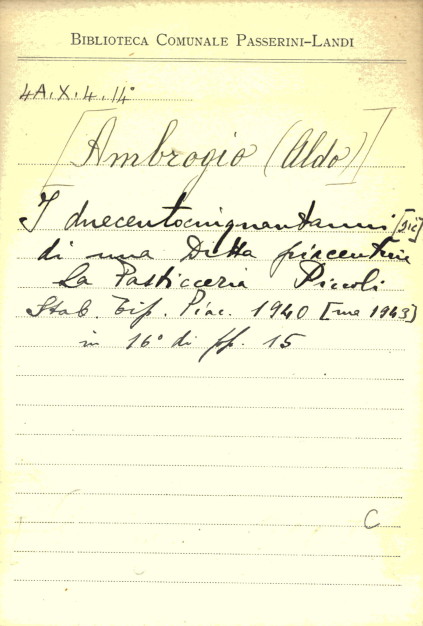 BIBLIOTECA COMUNALE PASSERINI-LANDI
4A.X.4.14°
[Ambrogio (Aldo)]
I duecentocinquantanni [sic]
di una Ditta piacentina
La Pasticceria Piccoli
Stab. Tip. Piac. 1940 [ma 1943]
in 16° di pp. 15
C